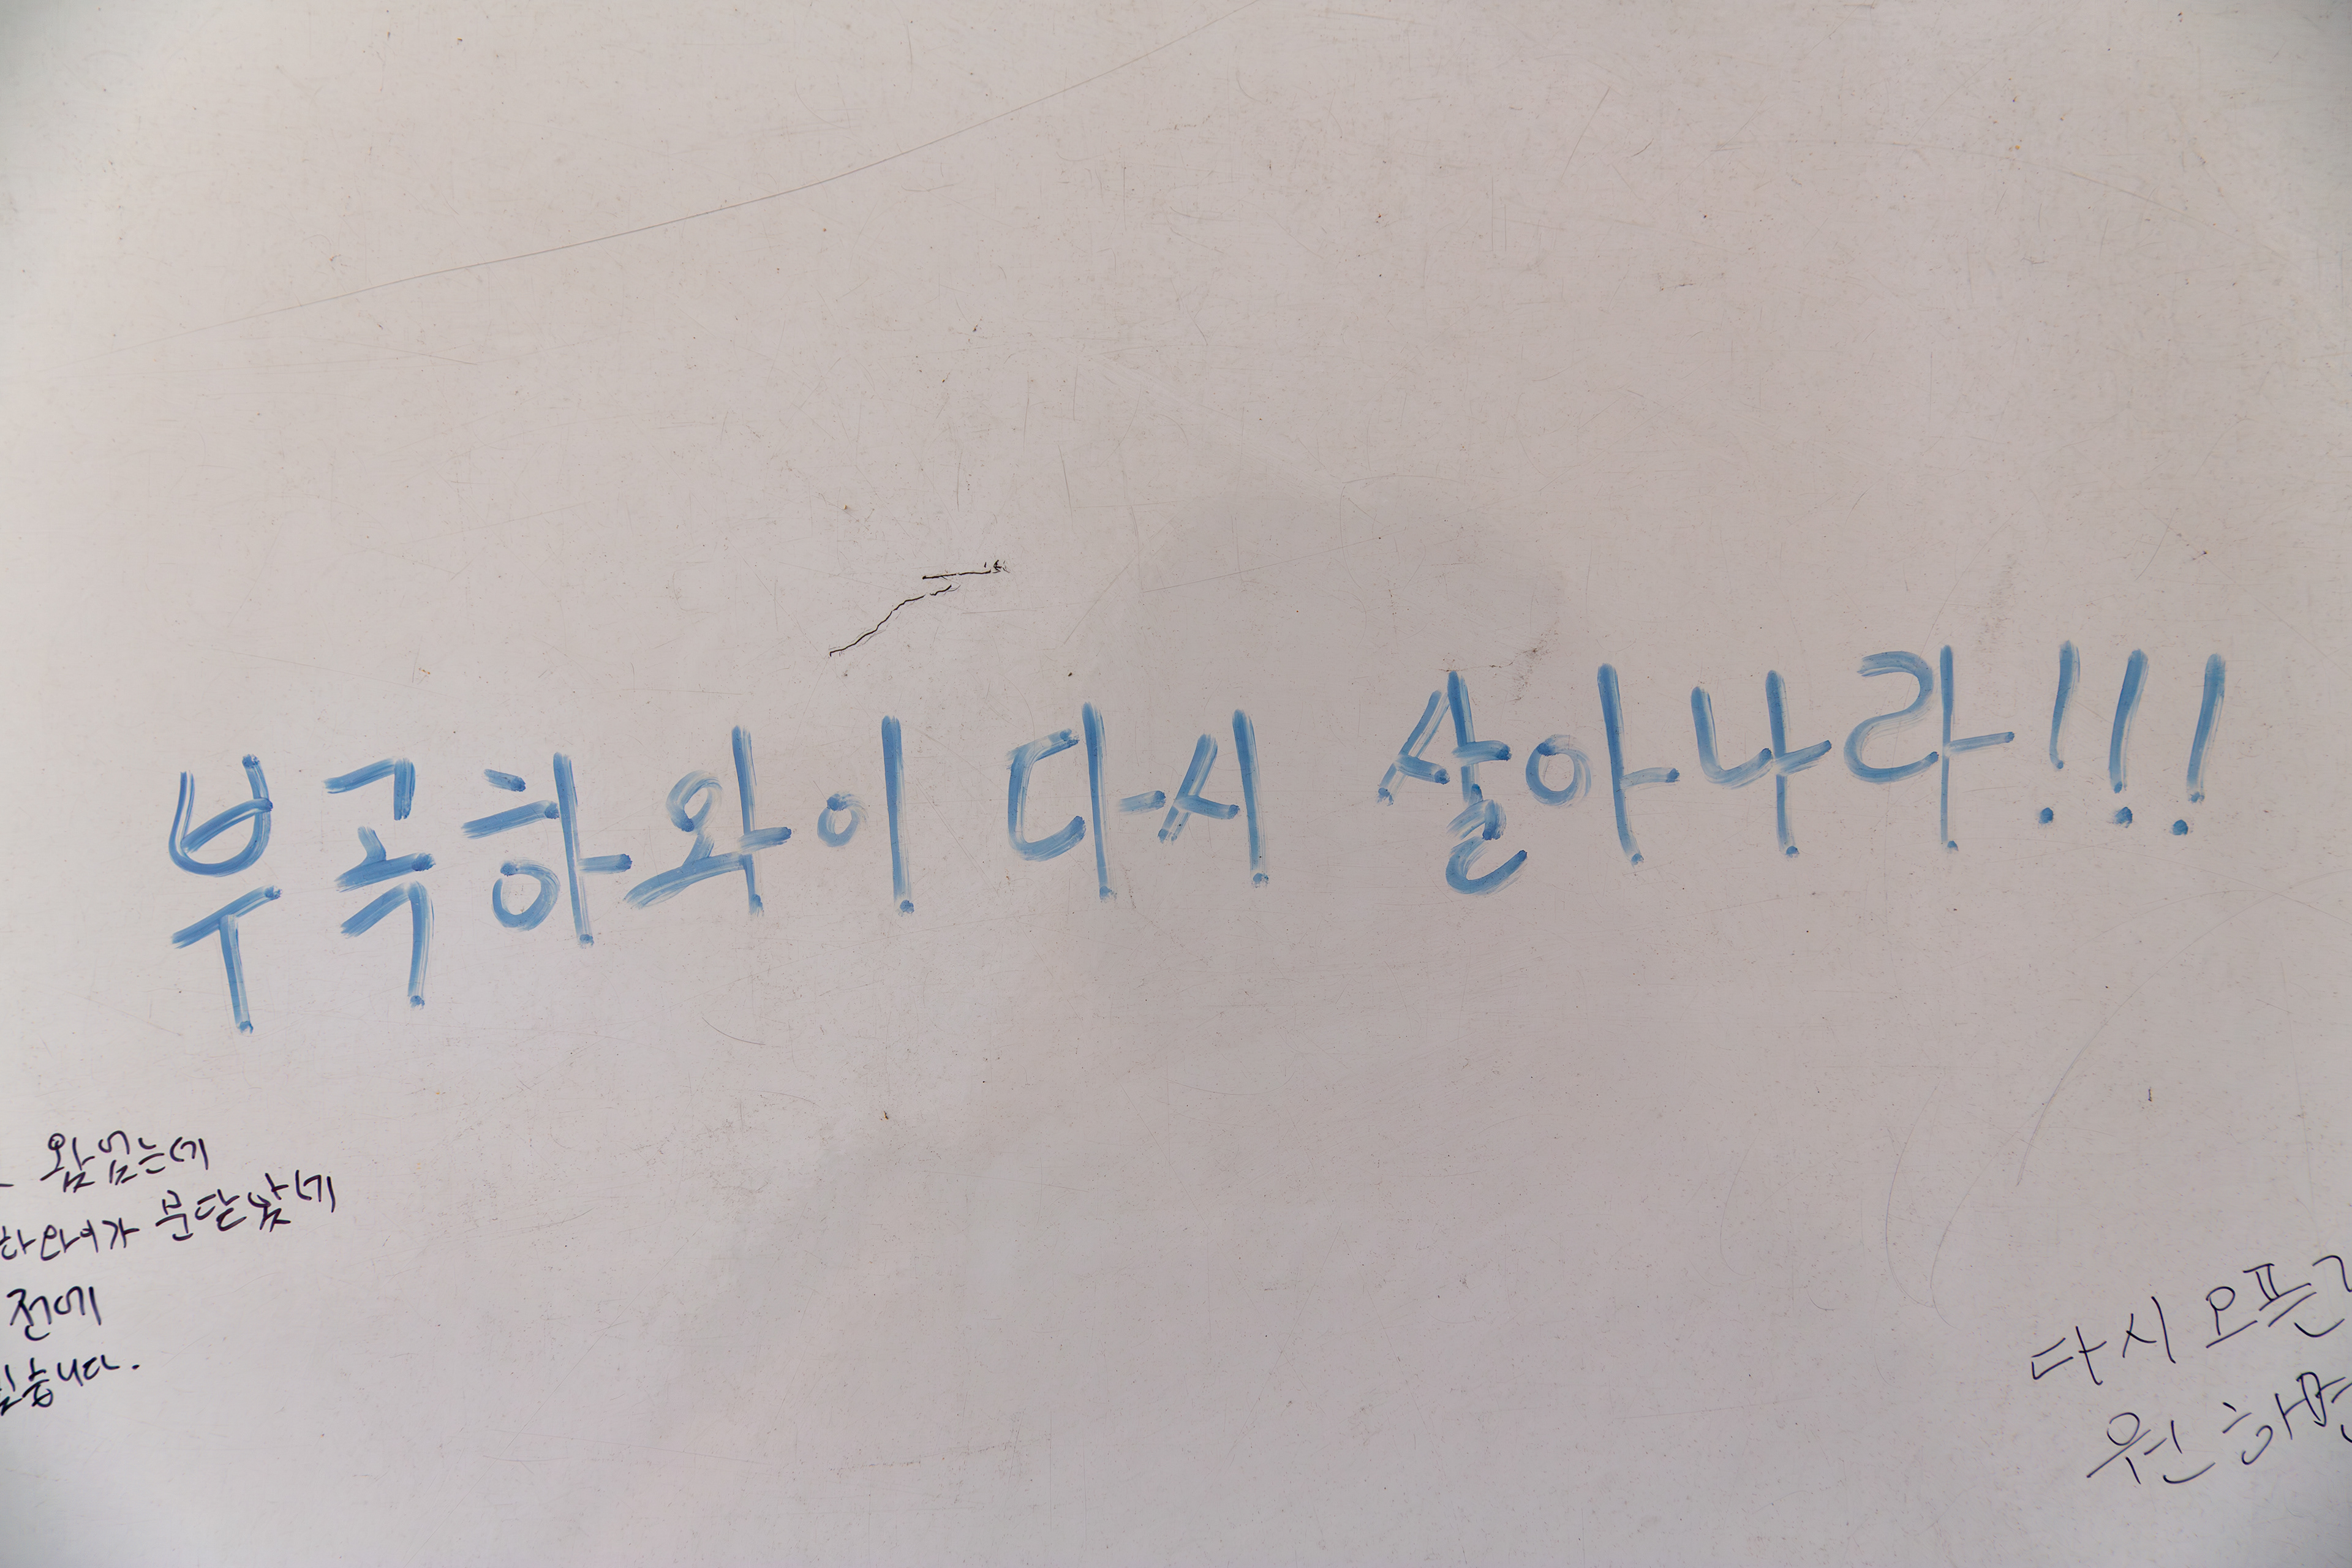 부곡하와이 다시 살아나라!!!
왔었는데
하와이가 문닫았네
전에
싶습니다.
다시 오픈
원하면